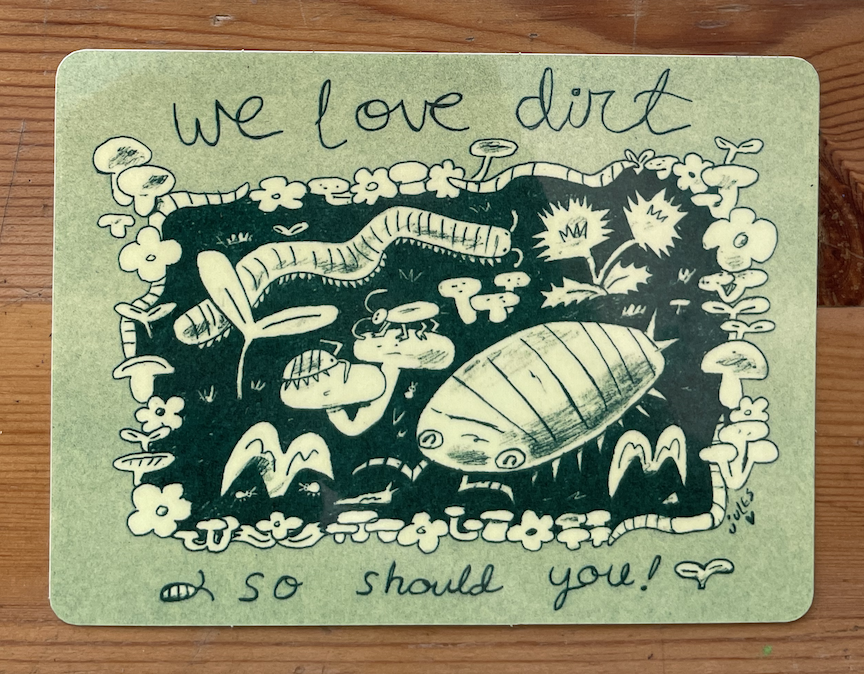 we love dirt
so should you!
JULES